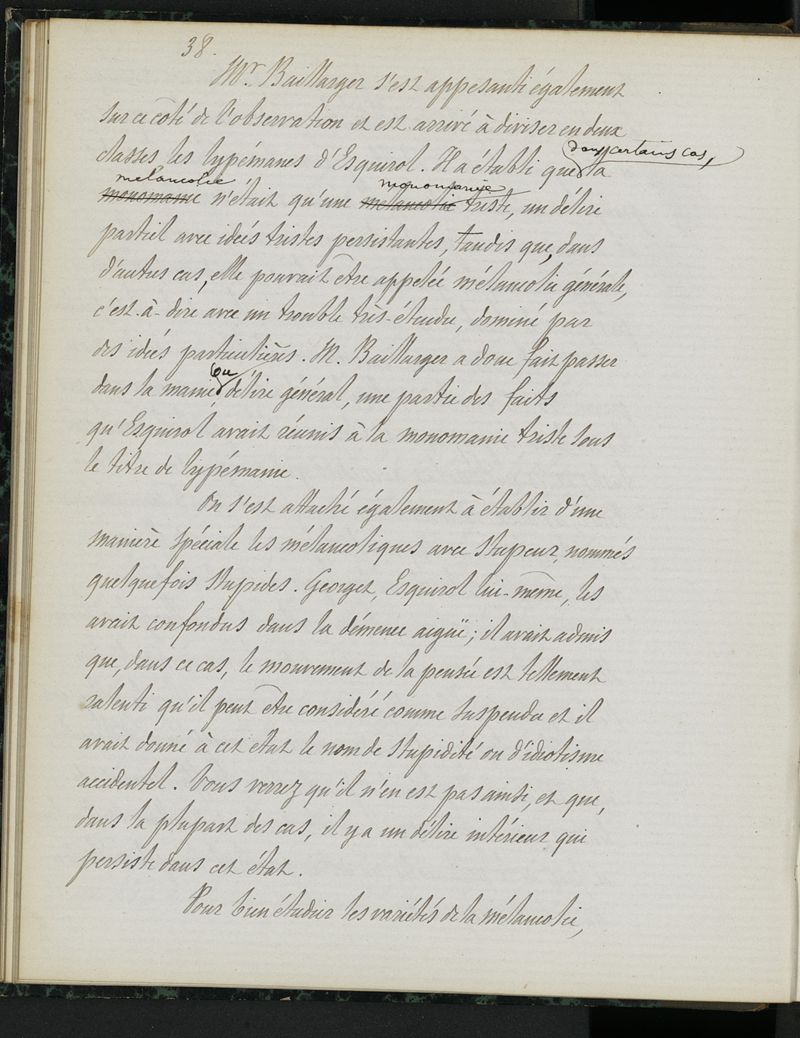 38.
Mr. Baillarger s'est appesanti également
sur ce coté de l'observation et est arrivé à diviser en deux
classes les lypémanes d'Esquirol. Il a établi que dans certains cas, la
mélancolie monomanie n'était qu'une monomanie mélancolie triste, un délire
partiel avec idées tristes persistantes, tandis que, dans
d'autres cas, elle pouvait être appelée mélancolie générale,
c'est-à-dire avec un trouble très-étendu, dominé par
des idées particulières. M. Baillarger a donc fait passer
dans la manie ou délire général, une partie des faits
qu'Esquirol avait réunis à la monomanie triste sous
le titre de lypémanie.
On s'est attaché également à établir d'une
manière spéciale les mélancoliques avec stupeur, nommés
quelquefois stupides. Georget, Esquirol lui-même, les
avait confondus dans la démence aigüe; il avait admis
que, dans ce cas, le mouvement de la pensée est tellement
ralenti qu'il peut être considéré comme suspendu et il
avait donné à cet état le nom de stupidité ou d'idiotisme
accidentel. Vous verrez qu'il n'en est pas ainsi, et que,
dans la plupart des cas, il y a un délire intérieur qui
persiste dans cet état.
Pour bien étudier les variétés de la mélancolie,